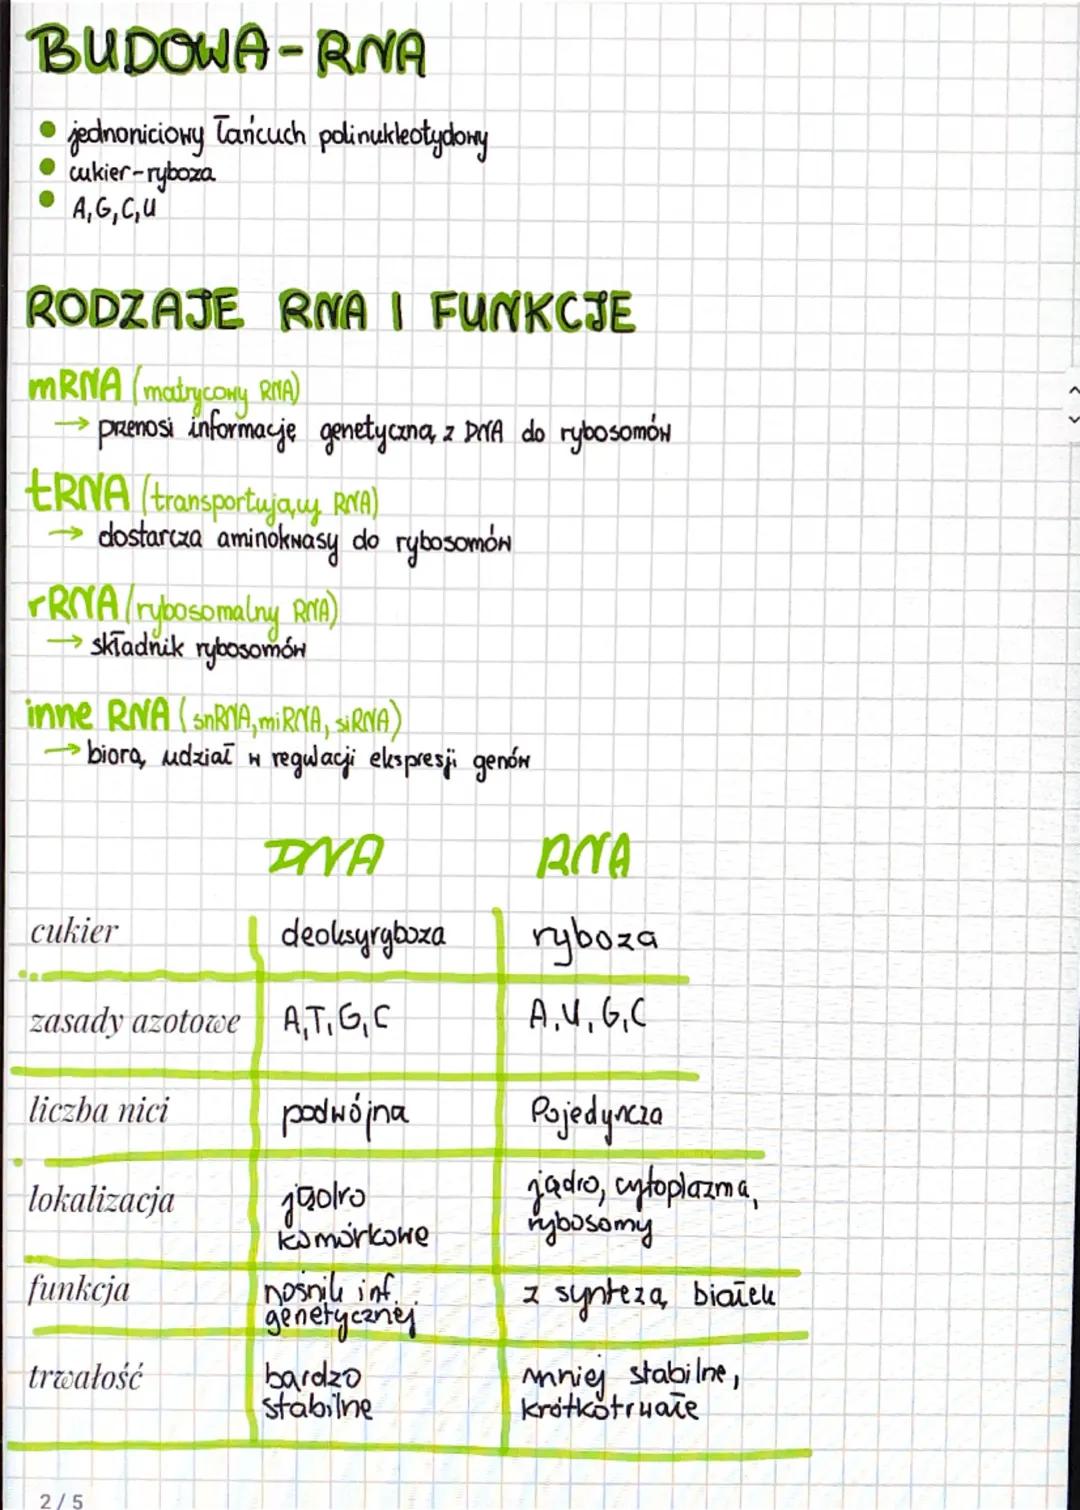 BUDOWA-RNA
jednoniciowy łańcuch polinukleotydowy
cukier-ryboza
A,G,C,U
RODZAJE RNA I FUNKCJE
mRNA (matrycowy RNA)
→ przenosi informację genetyczną z DNA do rybosomów
tRNA (transportujący RNA)
→ dostarcza aminokwasy do rybosomów
rRNA (rybosomalny RNA)
→ składnik rybosomów
inne RNA (snRNA, miRNA, siRNA)
→ biorą udział w regulacji ekspresji genów
DNA RNA
cukier deoksyryboza ryboza
zasady azotowe A,T,G,C A,U,G,C
liczba nici podwójna Pojedyncza
lokalizacja jądro komórkowe jądro, cytoplazma, rybosomy
funkcja nośnik inf. genetycznej z syntezą białek
trwałość bardzo stabilne mniej stabilne, krótkotrwałe
2/5